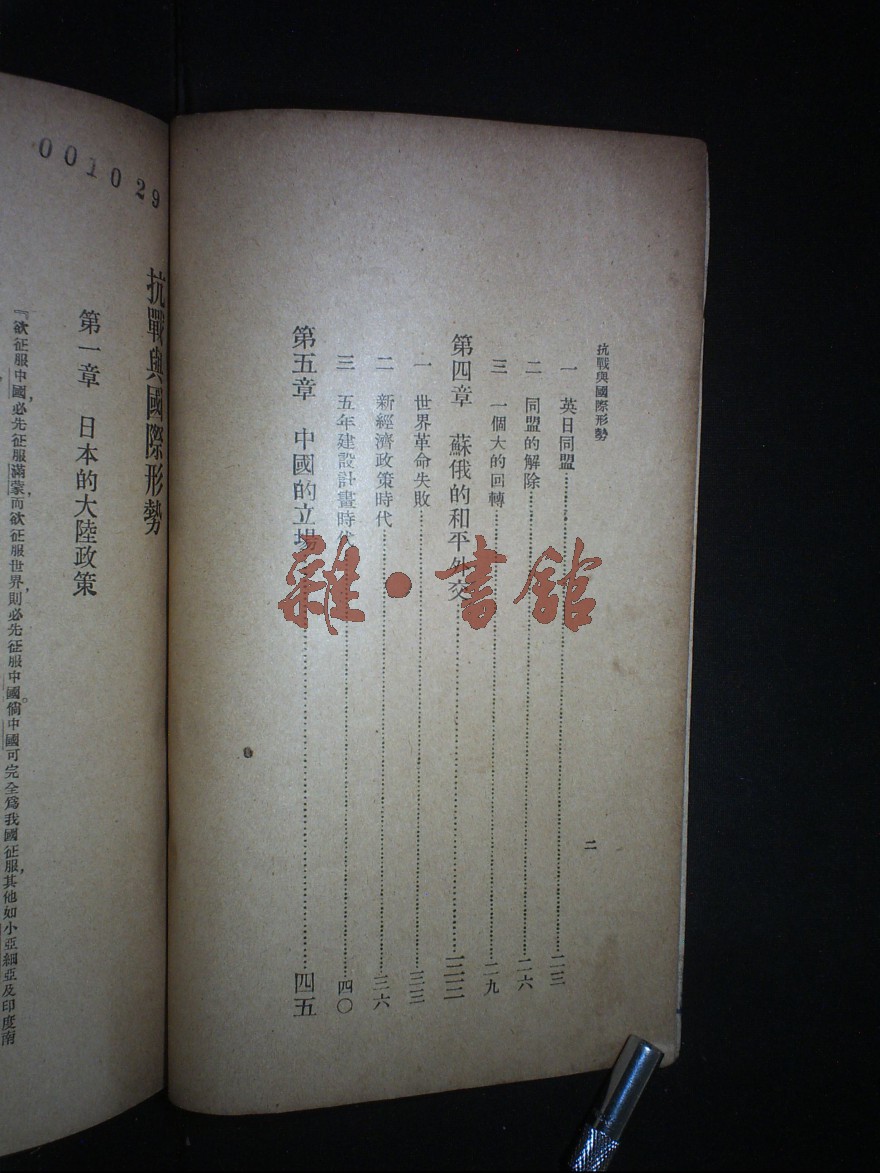 抗戰與國際形勢
一 英日同盟……二三
二 同盟的解除……二六
三 一個大的回轉……二九
第四章 蘇俄的和平外交……三三
一 世界革命失敗……三三
二 新經濟政策時代……三六
三 五年建設計畫時代……四〇
第五章 中國的立場……四五
二
001029
抗戰與國際形勢
第一章 日本的大陸政策
『欲征服中國，必先征服滿蒙，而欲征服世界，則必先征服中國。倘中國可完全爲我國征服，其他如小亞細亞及印度南
雜·書館